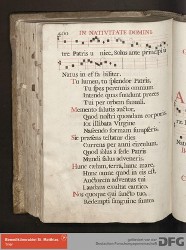 IN NATIVITATE DOMINI
tre Patris u nice, Solus ante principiu
Natus in effabiliter.
Tu lumen, tu splendor Patris,
Tu spes perennis omnium
Intende quas fundunt preces
Tui per orbem famuli.
Memento salutis auctor,
Quod nostri quondam corporis
Ex illibata Virgine
Nascendo formam sumpseris.
Sic præsens testatur dies
Currens per anni circulum,
Quod solus a sede Patris
Mundi salus adveneris.
Hunc cælum, terra, hunc mare,
Hunc omne quod in eis est,
Auctorem adventus tui
Laudans exultat cantico.
Nos quoque qui sancto tuo
Redempti sanguine sumus
DFG